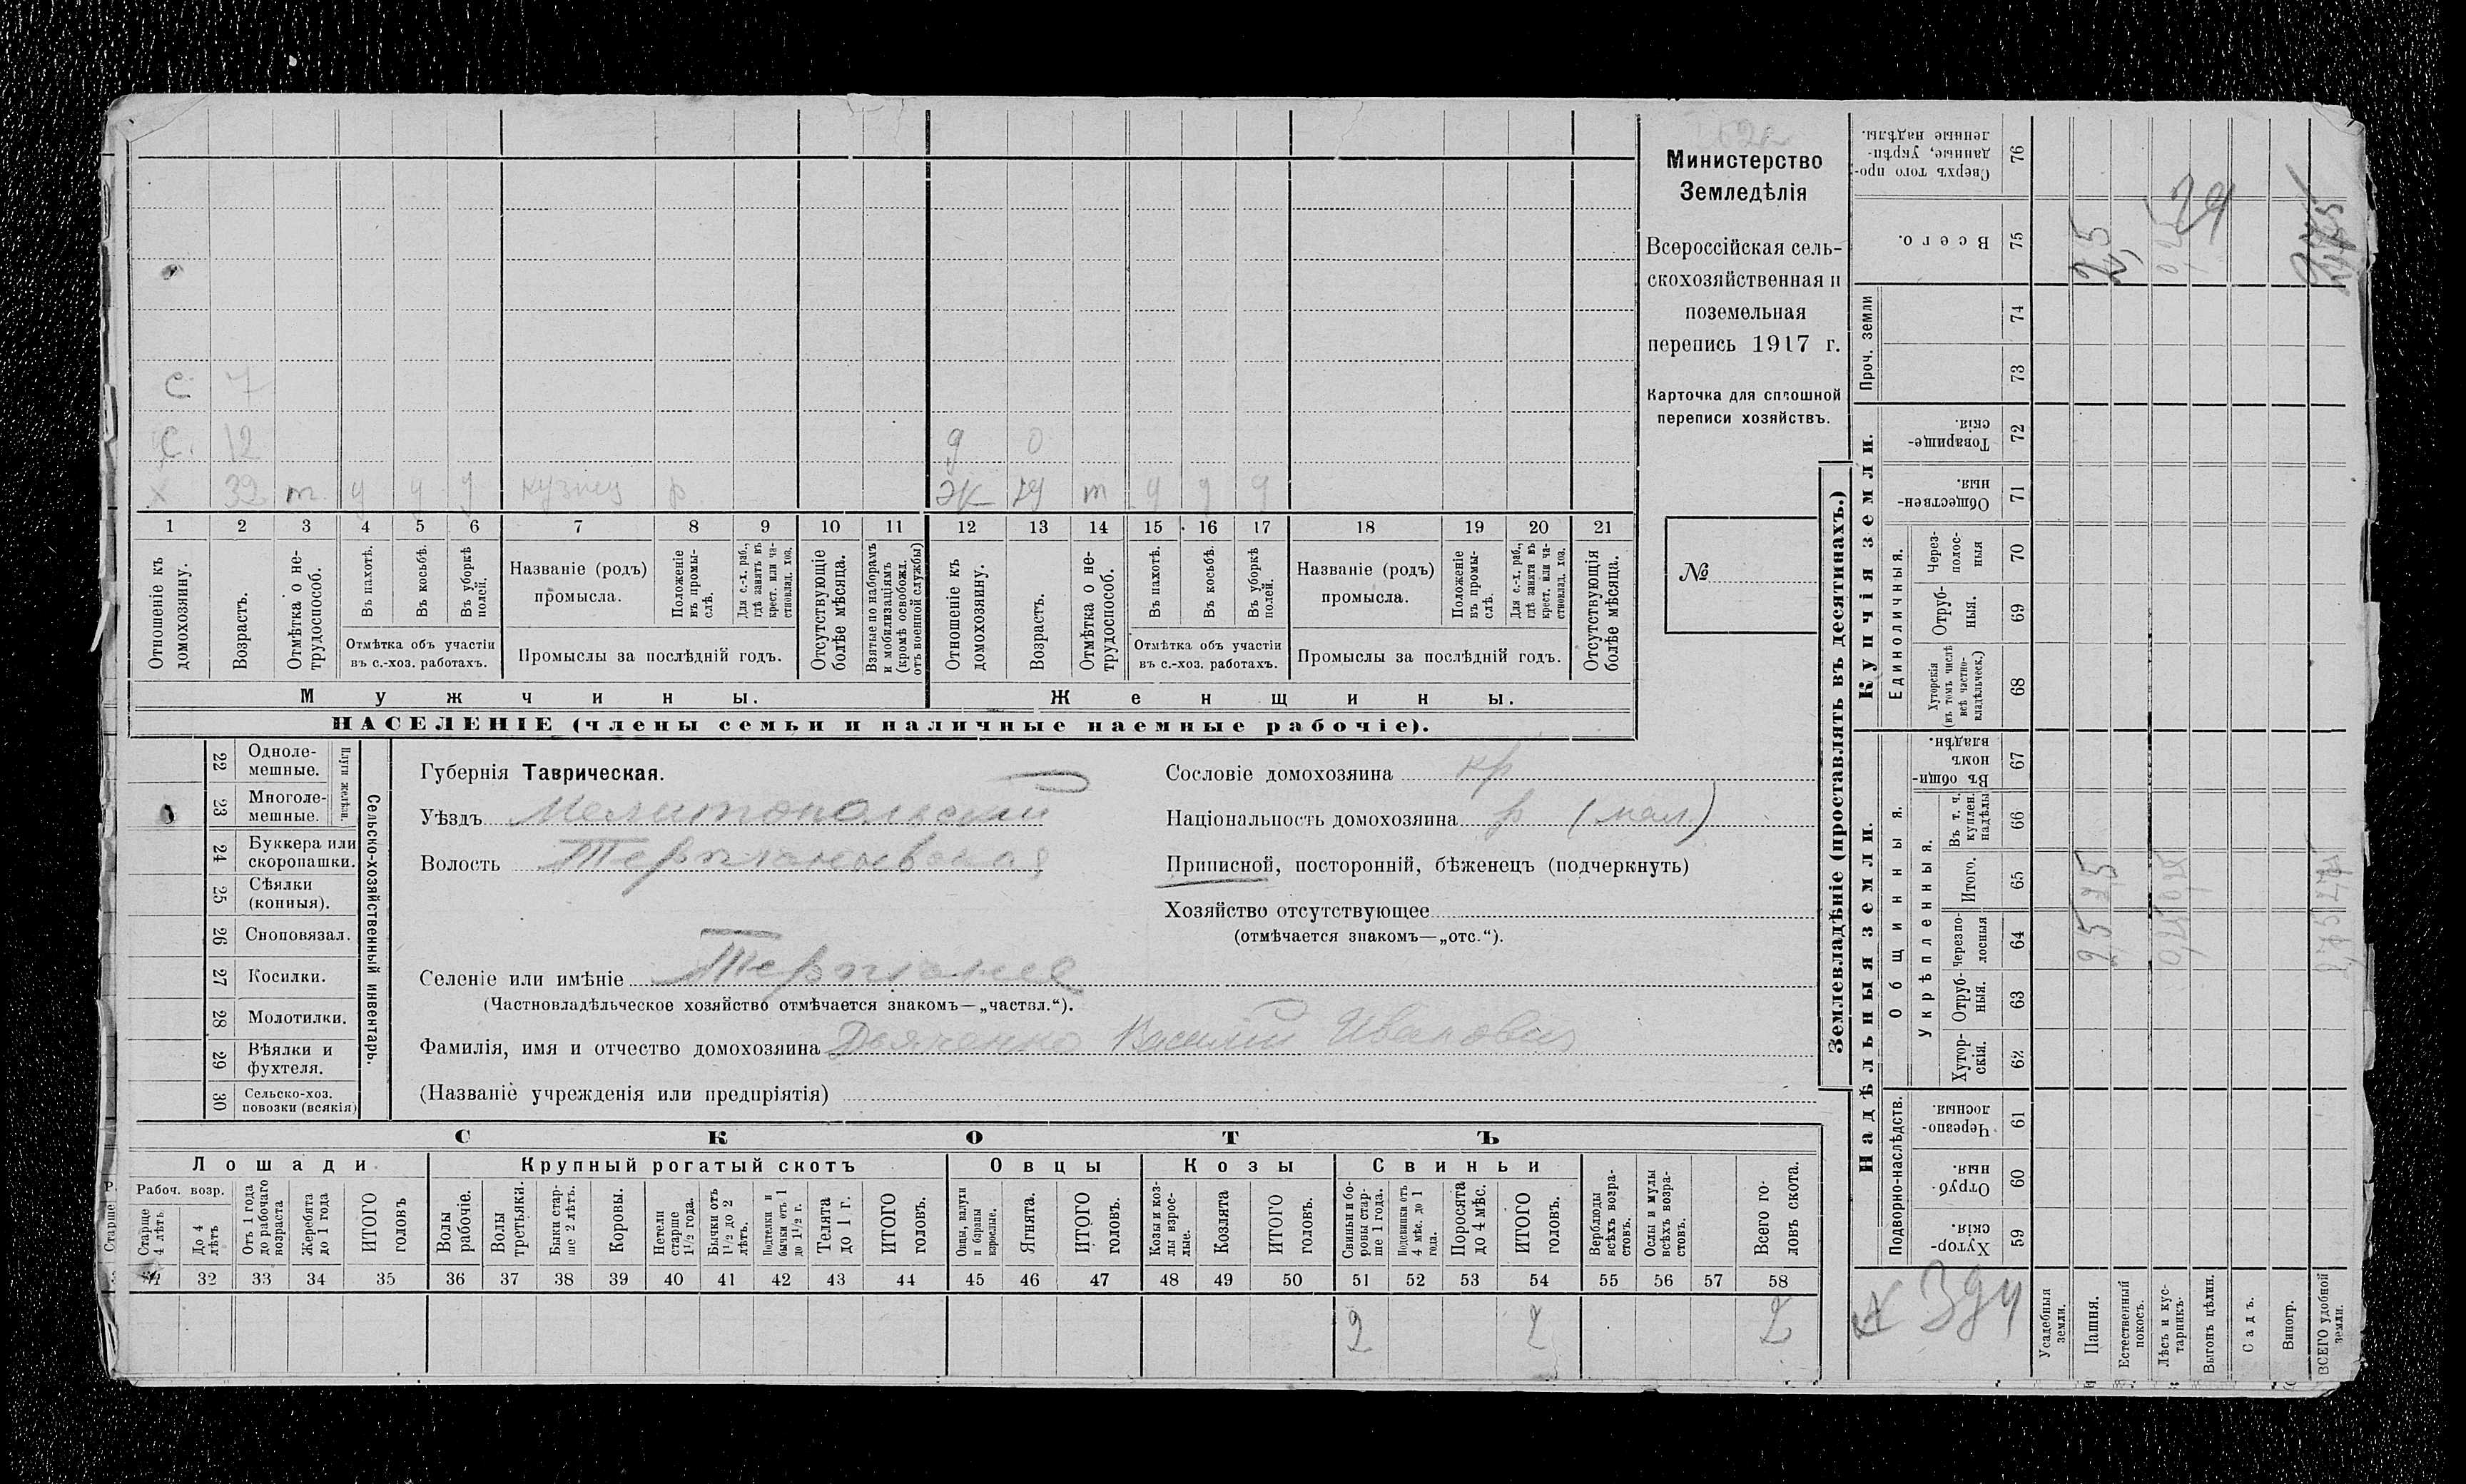 С. 7
С. 12 д 0
х 32 т. у у у кузнец р. Ж 29 т у у у
1 2 3 4 5 6 7 8 9 10 11 12 13 14 15 16 17 18 19 20 21
Отношеніе къ домохозяину.
Возрастъ.
Отмѣтка о нетрудоспособ.
Въ пахотѣ.
Въ косьбѣ.
Въ уборкѣ полей.
Отмѣтка объ участіи
въ с.-хоз. работахъ.
Названіе (родъ)
промысла.
Положеніе въ промыслѣ.
Для с.-х. раб., гдѣ занятъ въ крест. или частновлад. хоз.
Промыслы за послѣдній годъ.
Отсутствующіе болѣе мѣсяца.
Взятые по наборамъ и мобилизаціямъ (кромѣ освобожд. отъ военной службы)
Отношеніе къ домохозяину.
Возрастъ.
Отмѣтка о нетрудоспособ.
Въ пахотѣ.
Въ косьбѣ.
Въ уборкѣ полей.
Отмѣтка объ участіи
въ с.-хоз. работахъ.
Названіе (родъ)
промысла.
Положеніе въ промыслѣ.
Для с.-х. раб., гдѣ занята въ крест. или частновлад. хоз.
Промыслы за послѣдній годъ.
Отсутствующія болѣе мѣсяца.
Мужчины.
Женщины.
НАСЕЛЕНІЕ (члены семьи и наличные наемные рабочіе).
Министерство
Земледѣлія
Всероссійская сель-
скохозяйственная и
поземельная
перепись 1917 г.
Карточка для сплошной
переписи хозяйствъ.
№
22 Однолемешные.
23 Многолемешные.
Плуги желѣзн.
24 Буккера или скоропашки.
25 Сѣялки (конныя).
26 Сноповязал.
27 Косилки.
28 Молотилки.
29 Вѣялки и фухтеля.
30 Сельско-хоз. повозки (всякія)
Сельско-хозяйственный инвентарь.
Губернія Таврическая.
Уѣздъ Мелитопольский
Волость Терпіньевская
Селеніе или имѣніе Терпіние
(Частновладѣльческое хозяйство отмѣчается знакомъ—„частвл.“).
Фамилія, имя и отчество домохозяина Дьяченко Василій Иванович
(Названіе учрежденія или предпріятія)
Сословіе домохозяина кр
Національность домохозяина р (мал)
Приписной, посторонній, бѣженецъ (подчеркнуть)
Хозяйство отсутствующее
(отмѣчается знакомъ—„отс.“).
СКОТЪ
Лошади
Крупный рогатый скотъ
Овцы
Козы
Свиньи
Рабоч. возр.
Старше 4 лѣтъ
До 4 лѣтъ
Отъ 1 года до рабочаго возраста
Жеребята до 1 года
ИТОГО головъ
Волы рабочіе.
Волы третьяки.
Быки старше 2 лѣтъ.
Коровы.
Нетели старше 1½ года.
Бычки отъ 1½ до 2 лѣтъ.
Подтелки и бычки отъ 1 до 1½ г.
Телята до 1 г.
ИТОГО головъ.
Овцы, валухи и бараны взрослые.
Ягнята.
ИТОГО головъ.
Козы и козлы взрослые.
Козлята
ИТОГО головъ.
Свиньи и боровы старше 1 года.
Подсвинки отъ 4 мѣс. до 1 года.
Поросята до 4 мѣс.
ИТОГО головъ.
Верблюды всѣхъ возрастовъ.
Ослы и мулы всѣхъ возрастовъ.
Всего головъ скота.
31 32 33 34 35 36 37 38 39 40 41 42 43 44 45 46 47 48 49 50 51 52 53 54 55 56 57 58
2 2 2
Землевладѣніе (проставлять въ десятинахъ.)
Купчія земли.
Надѣльныя земли.
Сверхъ того проданные, укрѣпленные надѣлы. 76
Всего. 75
Проч. земли
74
73
Товарищескія. 72
Общественныя. 71
Единоличныя.
Черезполосныя 70
Отрубныя. 69
Хуторскія (въ томъ числѣ всѣ частновладѣльческ.) 68
Общинныя.
Въ общинномъ владѣн. 67
Укрѣпленныя.
Въ т. ч. куплен. надѣлы 66
Итого. 65
Черезполосныя 64
Отрубныя. 63
Хуторскія. 62
Подворно-наслѣдств.
Черезполосныя. 61
Отрубныя. 60
Хуторскія. 59
Усадебныя земли.
Пашня.
Естественный покосъ.
Лѣсъ и кустарникъ.
Выгонъ цѣлин.
Садъ.
Виногр.
ВСЕГО удобной земли.
2,5
29
2,5 2,5
0,25 0,25
2,75 2,75